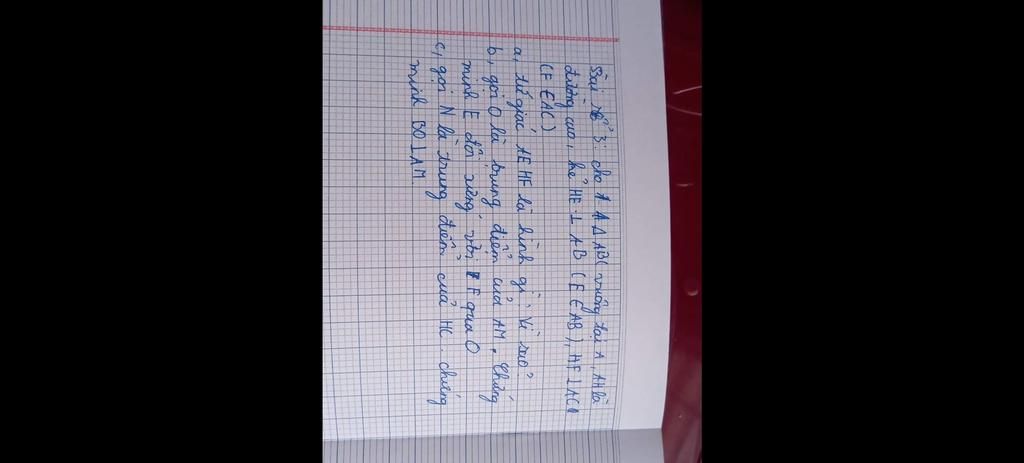 Bài 3: cho ΔABC vuông tại A, AH là
đường cao, kẻ HE ⊥ AB (E ∈ AB), HF ⊥ AC
(F ∈ AC)
a, tứ giác AEHF là hình gì, Vì sao?
b, gọi O là trung điểm của AM. Chứng
minh E đối xứng với F qua O
c, gọi N là trung điểm của HC. chứng
minh BO ⊥ AM.